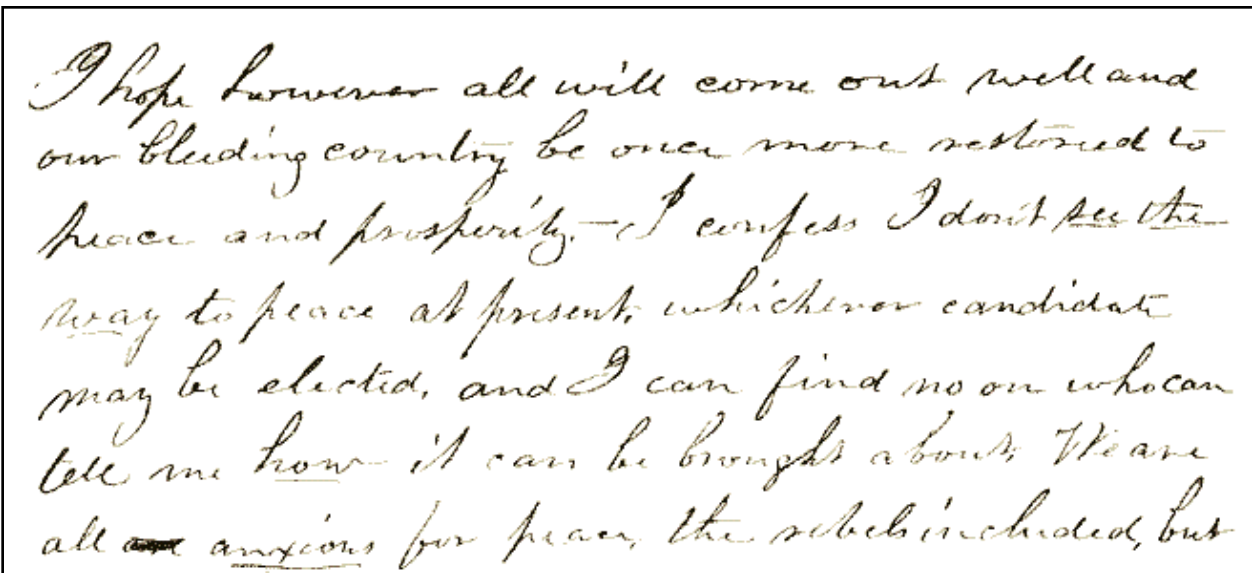 I hope however all will come out well and
our bleeding country be once more restored to
peace and prosperity. — I confess I don't see the
way to peace at present, whichever candidate
may be elected, and I can find no one who can
tell me how it can be brought about. We are
all anxious for peace, the rebels included, but